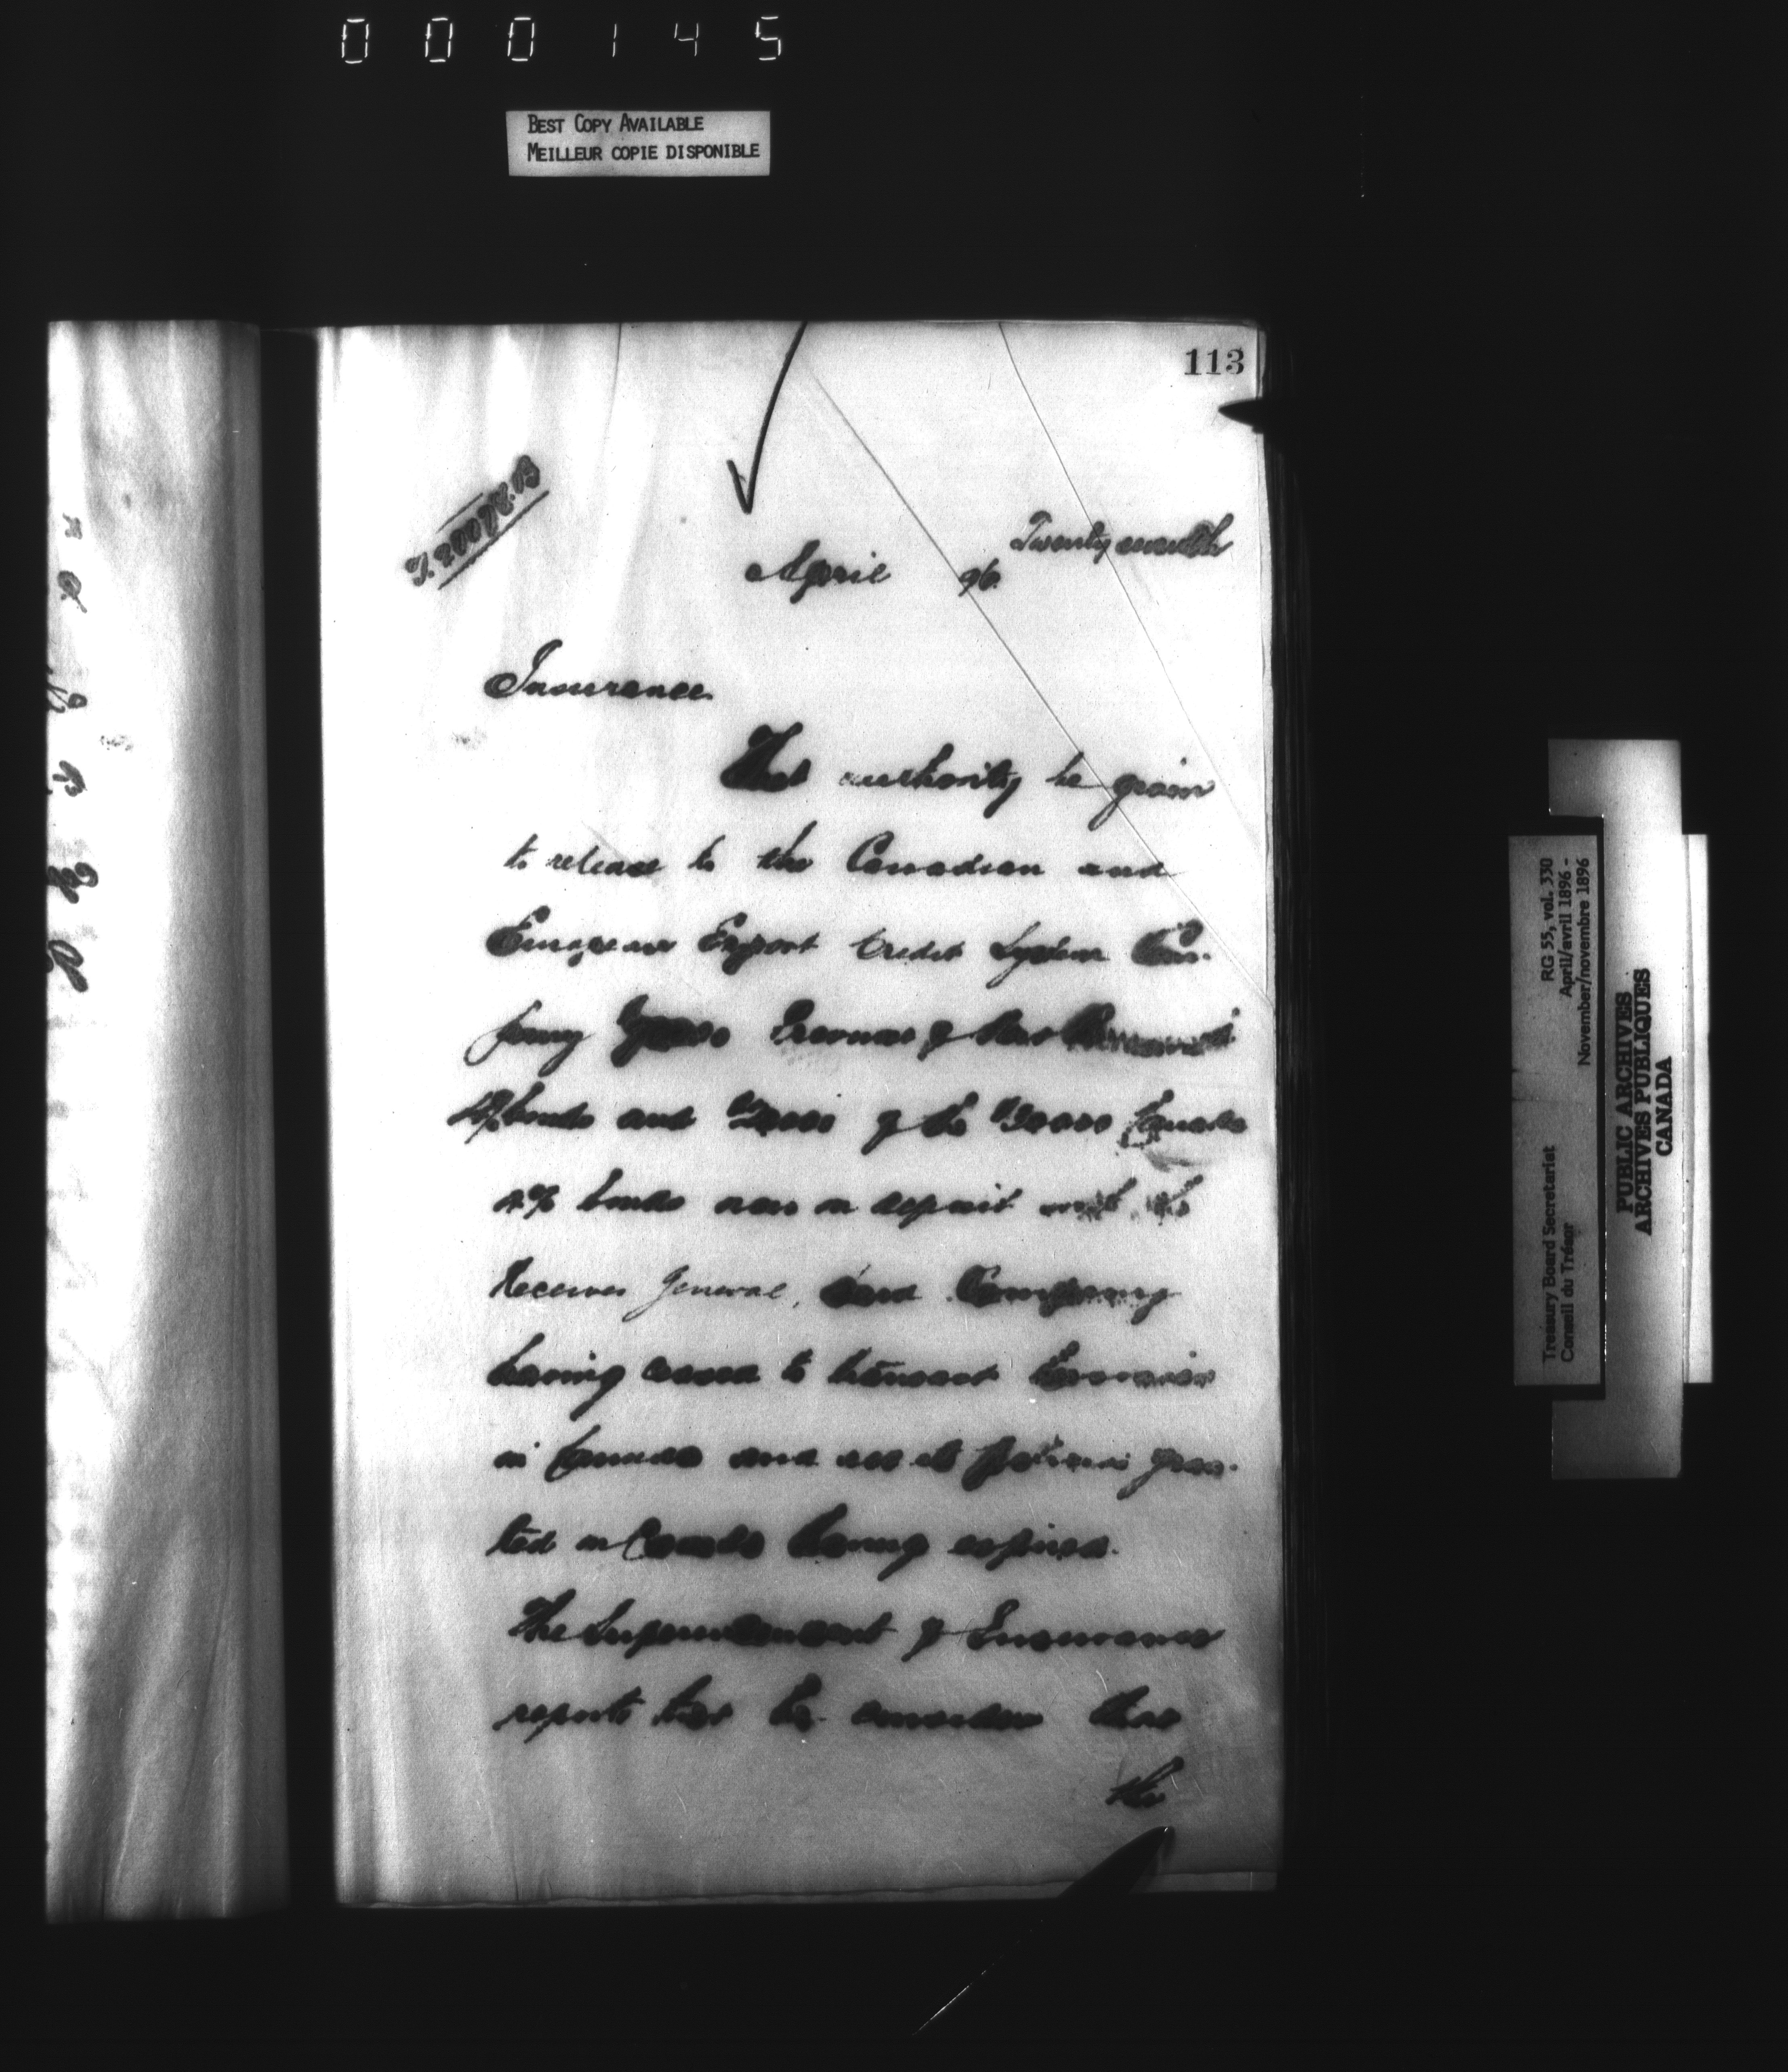 000145
BEST COPY AVAILABLE
MEILLEUR COPIE DISPONIBLE
113
Twenty
April 96.
Insurance.
That authority be given
to release to the Canadian and
European Export Credit System Com-
pany of
bonds and of the Canada
4% bonds now on deposit with the
Receiver General, said Company
having ceased to transact business
in Canada and all its policies gran-
ted in Canada having expired.
The Superintendent of Insurance
reports that he considers that
the
RG 55, vol. 330
April/avril 1896 -
November/novembre 1896
Treasury Board Secretariat
Conseil du Trésor
PUBLIC ARCHIVES
ARCHIVES PUBLIQUES
CANADA